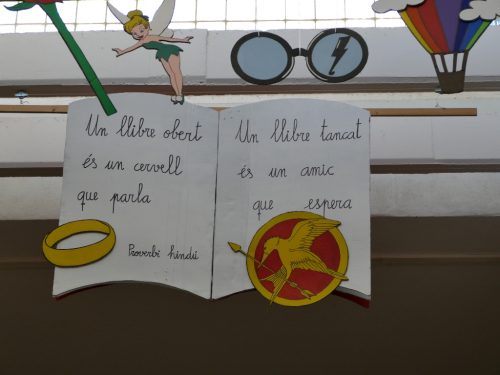 Un llibre obert
és un cervell
que parla
Proverbi hindú
Un llibre tancat
és un amic
que espera